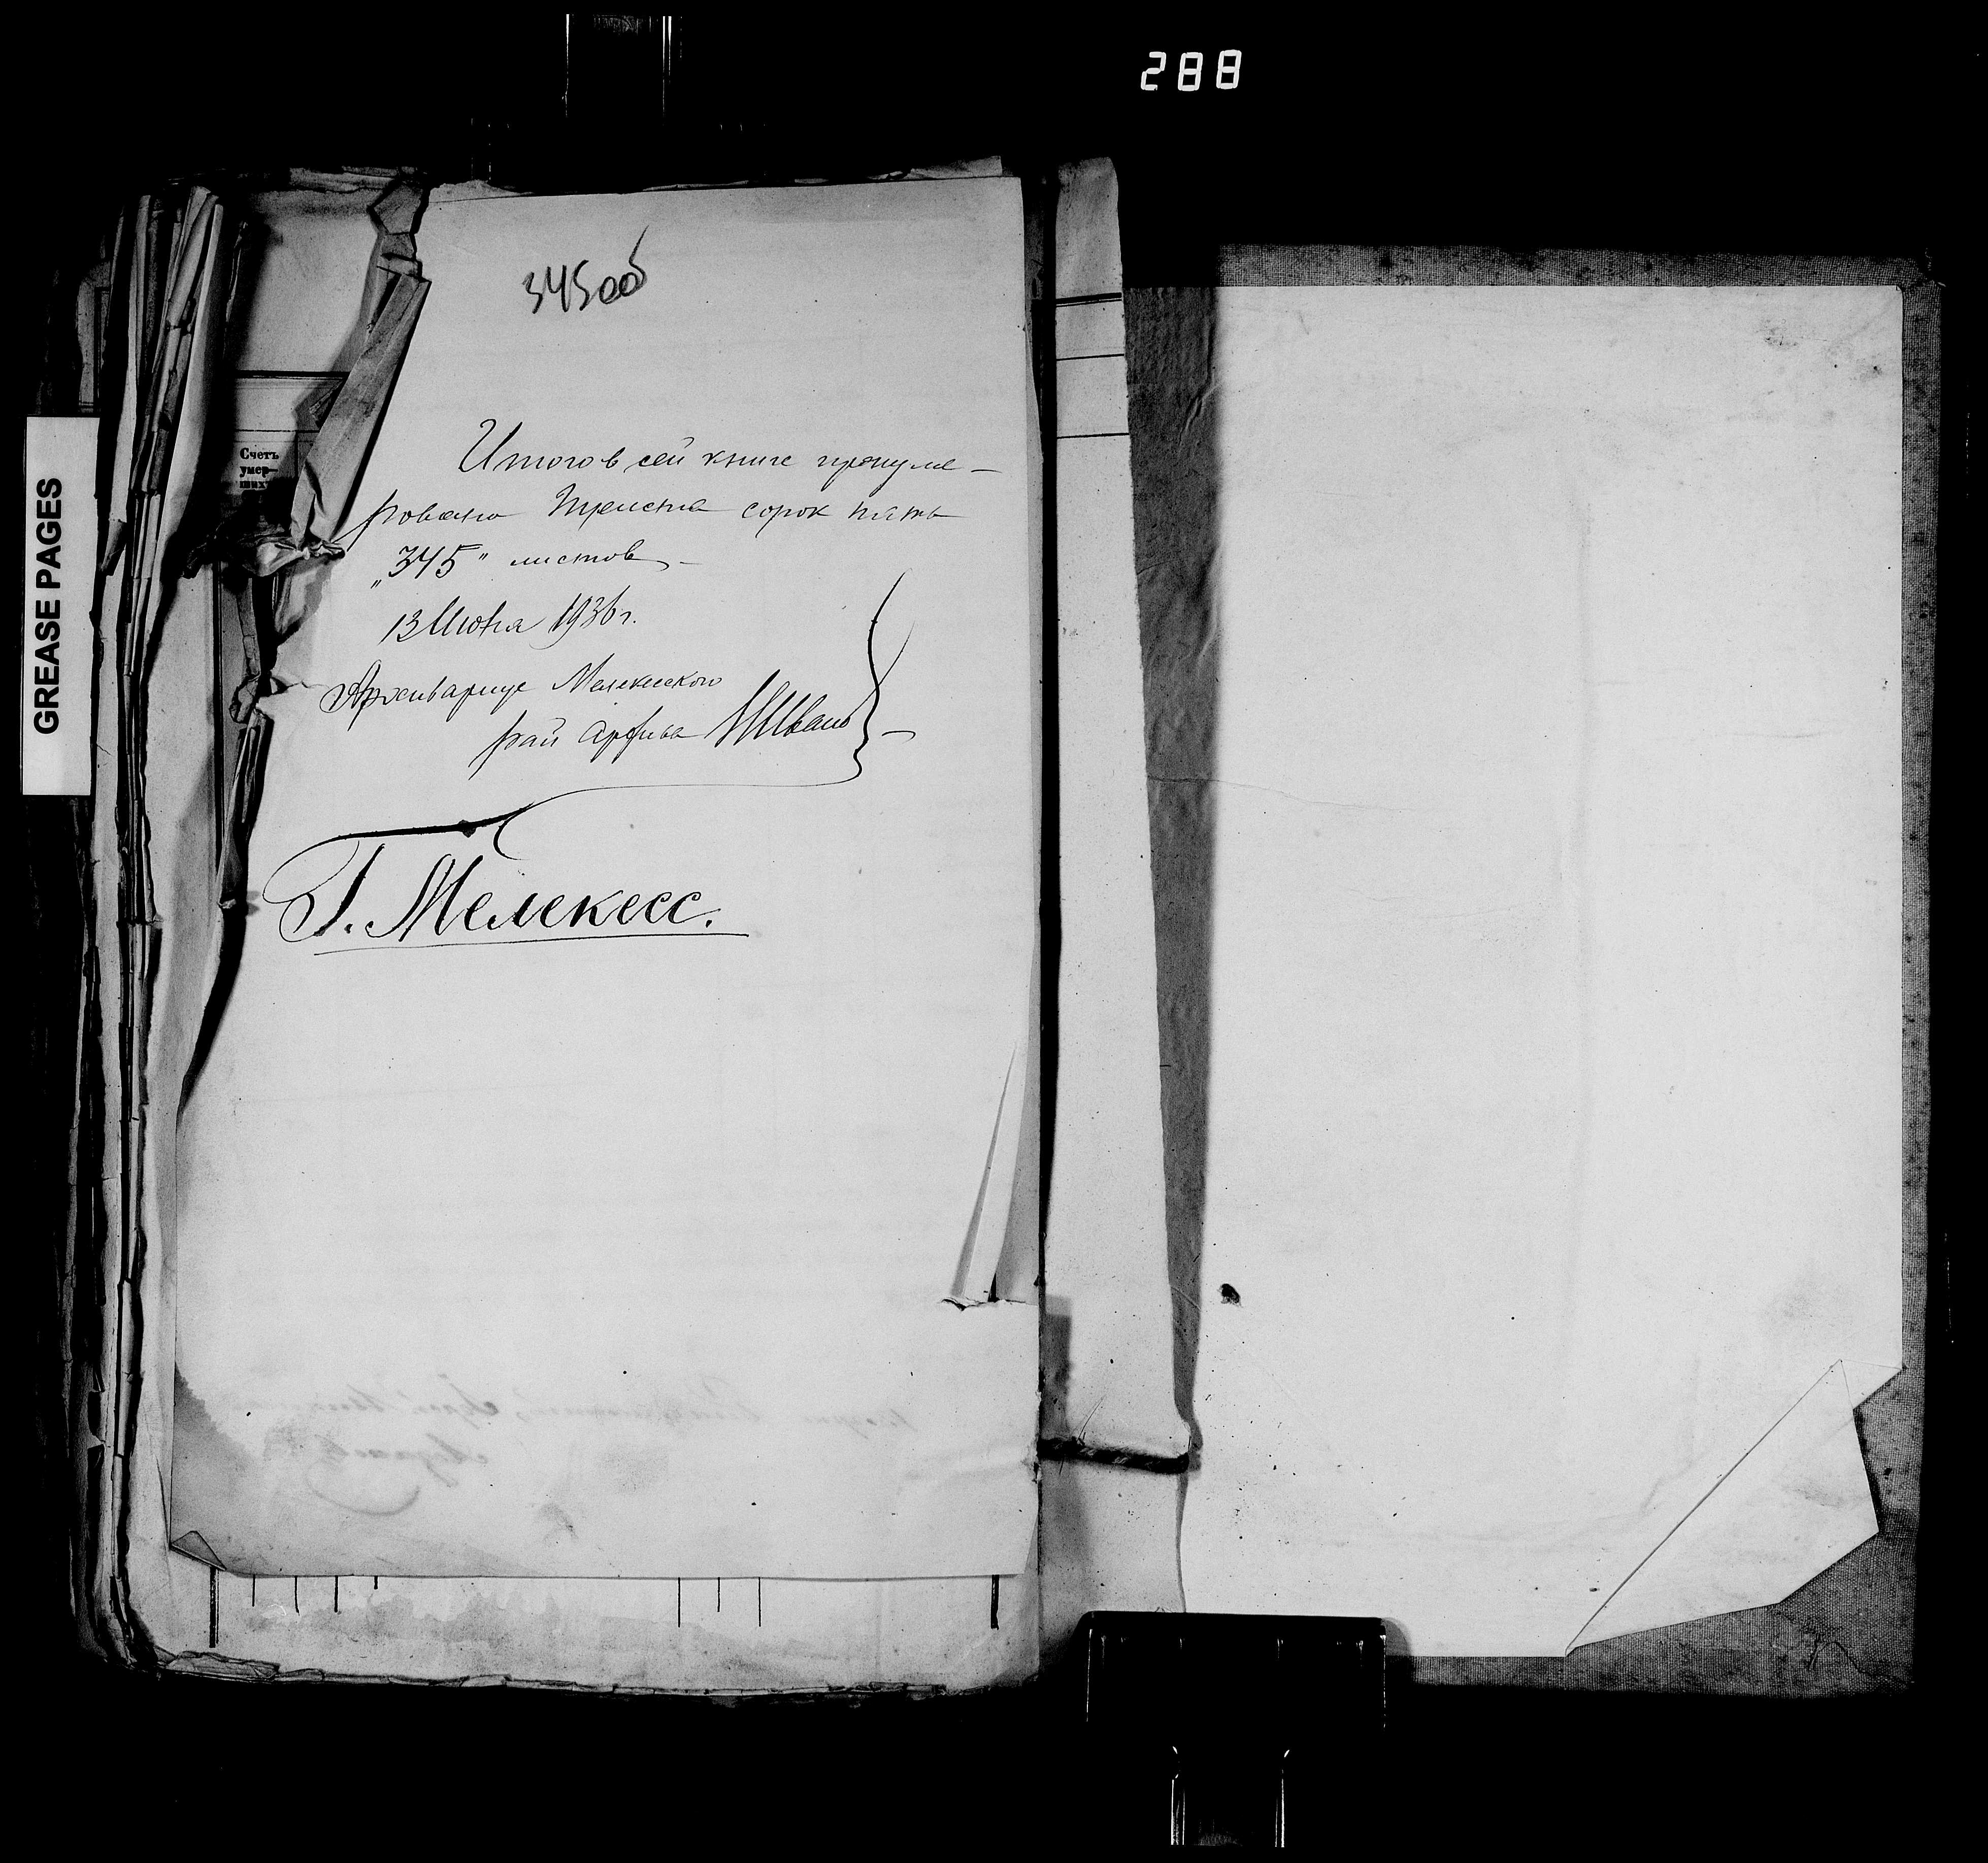 288
345об
GREASE PAGES
Счетъ
умер-
ших
Итого в сей книге пронуме-
ровано триста сорок пять
„345" листов
13 Июня 1936 г.
Архивариус Мелекесского
рай архива
Г. Мелекесс.